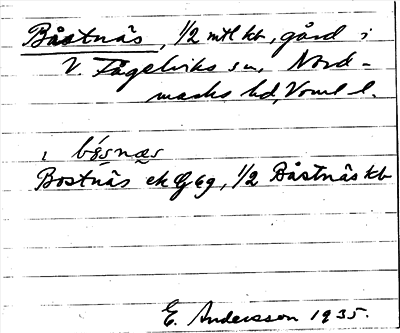 Båstnäs, 1/2 mtl kb, gård i
V. Fågelviks sn, Nord-
marks hd, Vrml l.
i bósnæs
Bostnäs ek G 69, 1/2 Båstnäs kb
E. Andersson 1935.